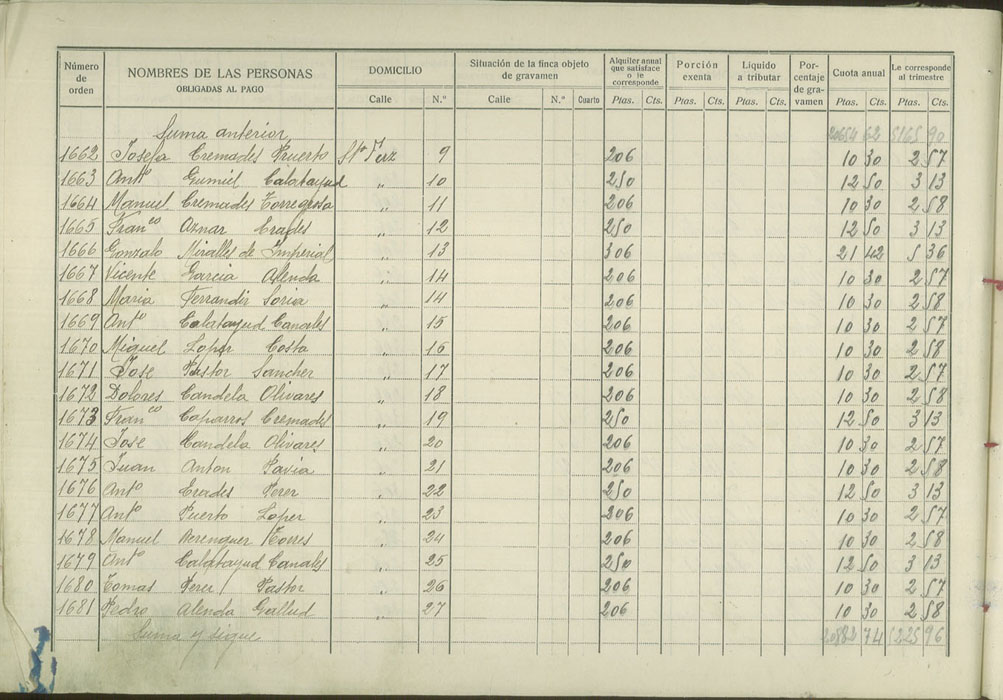 Número de orden | NOMBRES DE LAS PERSONAS OBLIGADAS AL PAGO | DOMICILIO | Situación de la finca objeto de gravamen | Alquiler anual que satisface o le corresponde | Porción exenta | Líquido a tributar | Por-centaje de gra-vamen | Cuota anual | Le corresponde al trimestre
Calle | N.º | Calle | N.º | Cuarto | Ptas. | Cts. | Ptas. | Cts. | Ptas. | Cts. | Ptas. | Cts. | Ptas. | Cts.
Suma anterior 20654 62 5165 90
1662 Josefa Cremades Puerto Sta Terz 9 206 10 30 2 57
1663 Antº Gumiel Calatayud " 10 250 12 50 3 13
1664 Manuel Cremades Torregrosa " 11 206 10 30 2 58
1665 Franco Aznar Erades " 12 250 12 50 3 13
1666 Gonzalo Miralles de Imperial " 13 306 21 42 5 36
1667 Vicente Garcia Alenda " 14 206 10 30 2 57
1668 Maria Ferrandiz Soria " 14 206 10 30 2 58
1669 Antº Calatayud Canales " 15 206 10 30 2 57
1670 Miguel Lopez Costa " 16 206 10 30 2 58
1671 Jose Pastor Sanchez " 17 206 10 30 2 57
1672 Dolores Candela Olivares " 18 206 10 30 2 58
1673 Franco Caparros Cremades " 19 250 12 50 3 13
1674 Jose Candela Olivares " 20 206 10 30 2 57
1675 Juan Anton Pavia " 21 206 10 30 2 58
1676 Antº Erades Perez " 22 250 12 50 3 13
1677 Antº Puerto Lopez " 23 206 10 30 2 57
1678 Manuel Berenguer Torres " 24 206 10 30 2 58
1679 Antº Calatayud Canales " 25 250 12 50 3 13
1680 Tomas Perez Pastor " 26 206 10 30 2 57
1681 Pedro Alenda Gallud " 27 206 10 30 2 58
Suma y sigue 20882 74 5225 96